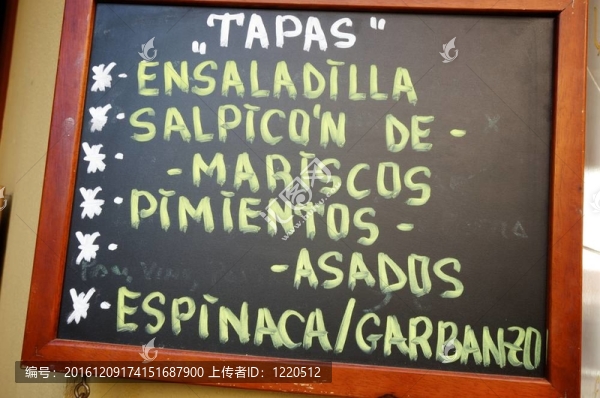 "TAPAS"
* ENSALADILLA
* SALPICO'N DE -
* - MARISCOS
* PIMIENTOS -
* - ASADOS
* ESPINACA/GARBANZO
编号:20161209174151687900 上传者ID:1220512